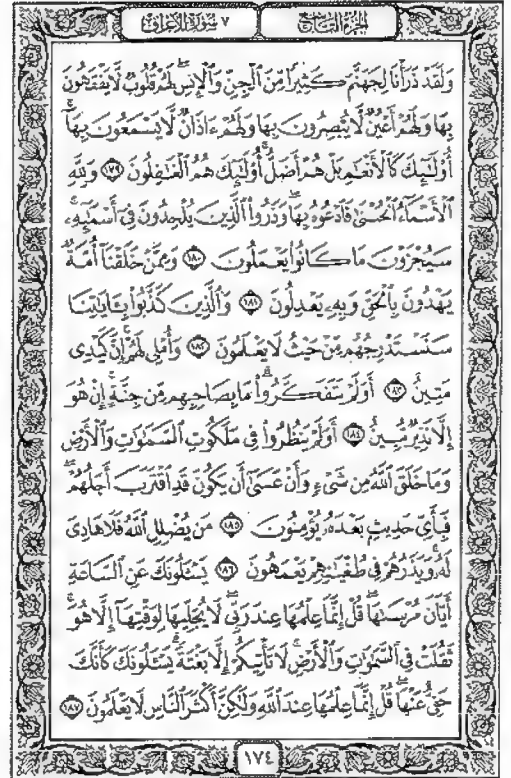 ٧ سُورَةُ الأعراف الجزء التاسع
وَلَقَدْ ذَرَأْنَا لِجَهَنَّمَ كَثِيرًا مِّنَ ٱلْجِنِّ وَٱلْإِنسِ لَهُمْ قُلُوبٌ لَّا يَفْقَهُونَ
بِهَا وَلَهُمْ أَعْيُنٌ لَّا يُبْصِرُونَ بِهَا وَلَهُمْ ءَاذَانٌ لَّا يَسْمَعُونَ بِهَآ
أُوْلَٰٓئِكَ كَٱلْأَنْعَٰمِ بَلْ هُمْ أَضَلُّ أُوْلَٰٓئِكَ هُمُ ٱلْغَٰفِلُونَ ١٧٩ وَلِلَّهِ
ٱلْأَسْمَآءُ ٱلْحُسْنَىٰ فَٱدْعُوهُ بِهَا وَذَرُوا۟ ٱلَّذِينَ يُلْحِدُونَ فِىٓ أَسْمَٰٓئِهِۦ
سَيُجْزَوْنَ مَا كَانُوا۟ يَعْمَلُونَ ١٨٠ وَمِمَّنْ خَلَقْنَآ أُمَّةٌ
يَهْدُونَ بِٱلْحَقِّ وَبِهِۦ يَعْدِلُونَ ١٨١ وَٱلَّذِينَ كَذَّبُوا۟ بِـَٔايَٰتِنَا
سَنَسْتَدْرِجُهُم مِّنْ حَيْثُ لَا يَعْلَمُونَ ١٨٢ وَأُمْلِى لَهُمْ إِنَّ كَيْدِى
مَتِينٌ ١٨٣ أَوَلَمْ يَتَفَكَّرُوا۟ مَا بِصَاحِبِهِم مِّن جِنَّةٍ إِنْ هُوَ
إِلَّا نَذِيرٌ مُّبِينٌ ١٨٤ أَوَلَمْ يَنظُرُوا۟ فِى مَلَكُوتِ ٱلسَّمَٰوَٰتِ وَٱلْأَرْضِ
وَمَا خَلَقَ ٱللَّهُ مِن شَىْءٍ وَأَنْ عَسَىٰٓ أَن يَكُونَ قَدِ ٱقْتَرَبَ أَجَلُهُمْ
فَبِأَىِّ حَدِيثٍۭ بَعْدَهُۥ يُؤْمِنُونَ ١٨٥ مَن يُضْلِلِ ٱللَّهُ فَلَا هَادِىَ
لَهُۥ وَيَذَرُهُمْ فِى طُغْيَٰنِهِمْ يَعْمَهُونَ ١٨٦ يَسْـَٔلُونَكَ عَنِ ٱلسَّاعَةِ
أَيَّانَ مُرْسَىٰهَا قُلْ إِنَّمَا عِلْمُهَا عِندَ رَبِّى لَا يُجَلِّيهَا لِوَقْتِهَآ إِلَّا هُوَ
ثَقُلَتْ فِى ٱلسَّمَٰوَٰتِ وَٱلْأَرْضِ لَا تَأْتِيكُمْ إِلَّا بَغْتَةً يَسْـَٔلُونَكَ كَأَنَّكَ
حَفِىٌّ عَنْهَا قُلْ إِنَّمَا عِلْمُهَا عِندَ ٱللَّهِ وَلَٰكِنَّ أَكْثَرَ ٱلنَّاسِ لَا يَعْلَمُونَ ١٨٧
١٧٤